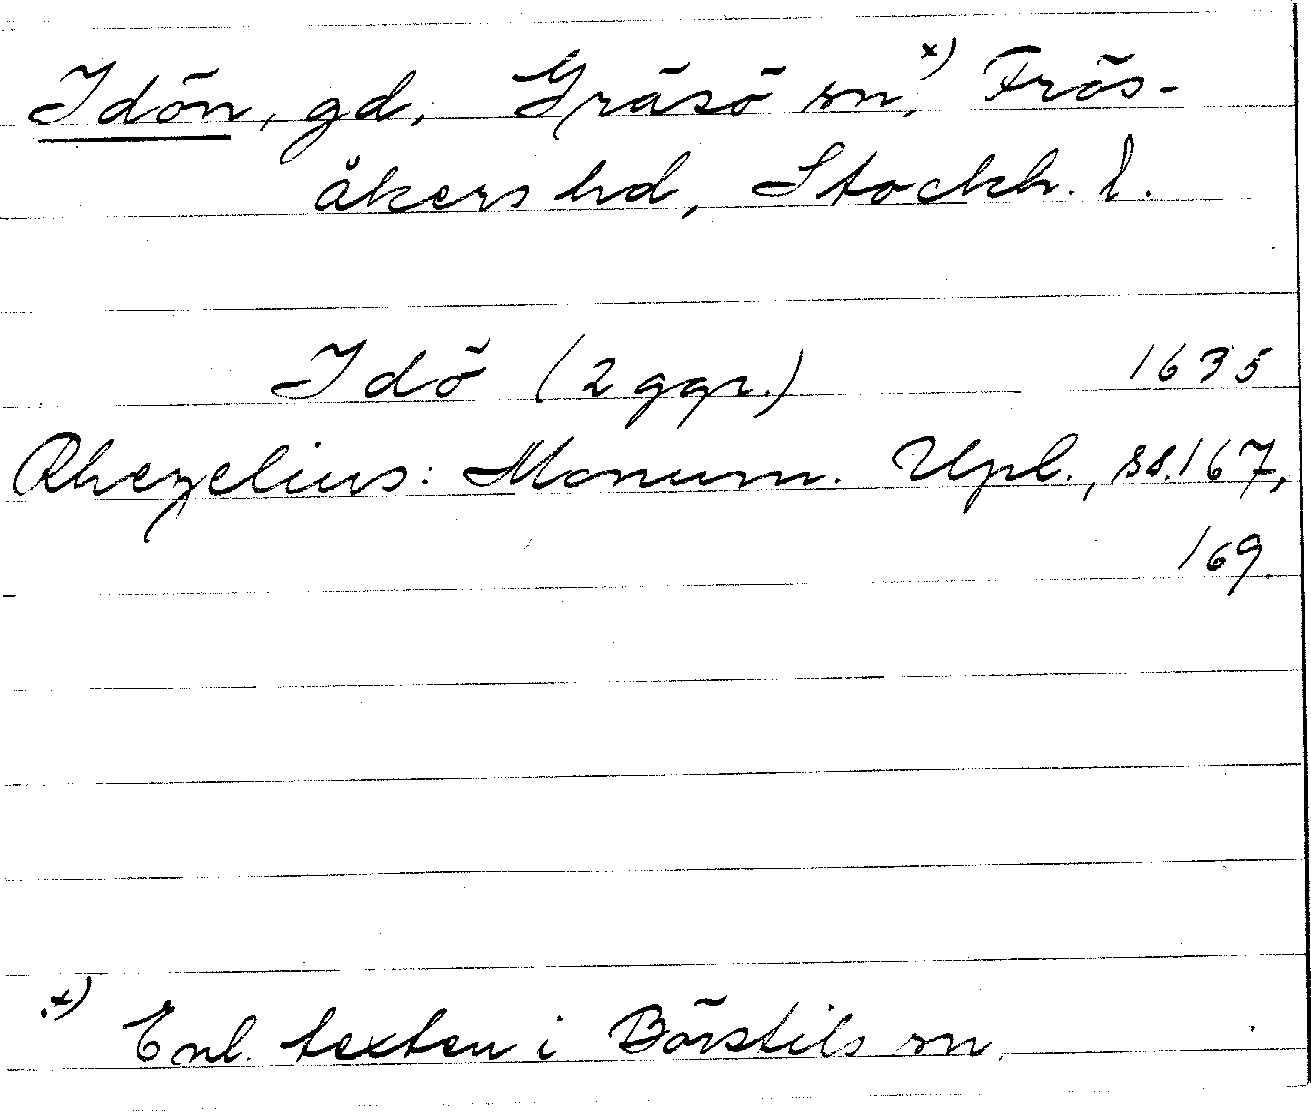 Idön, gd, Gräsö sn,x) Frös-
åkers hd, Stockh. l.
Idö (2 ggr.) 1635
Rhezelius: Monum. Upl., ss. 167,
169.
x) Enl. texten i Börstils sn.